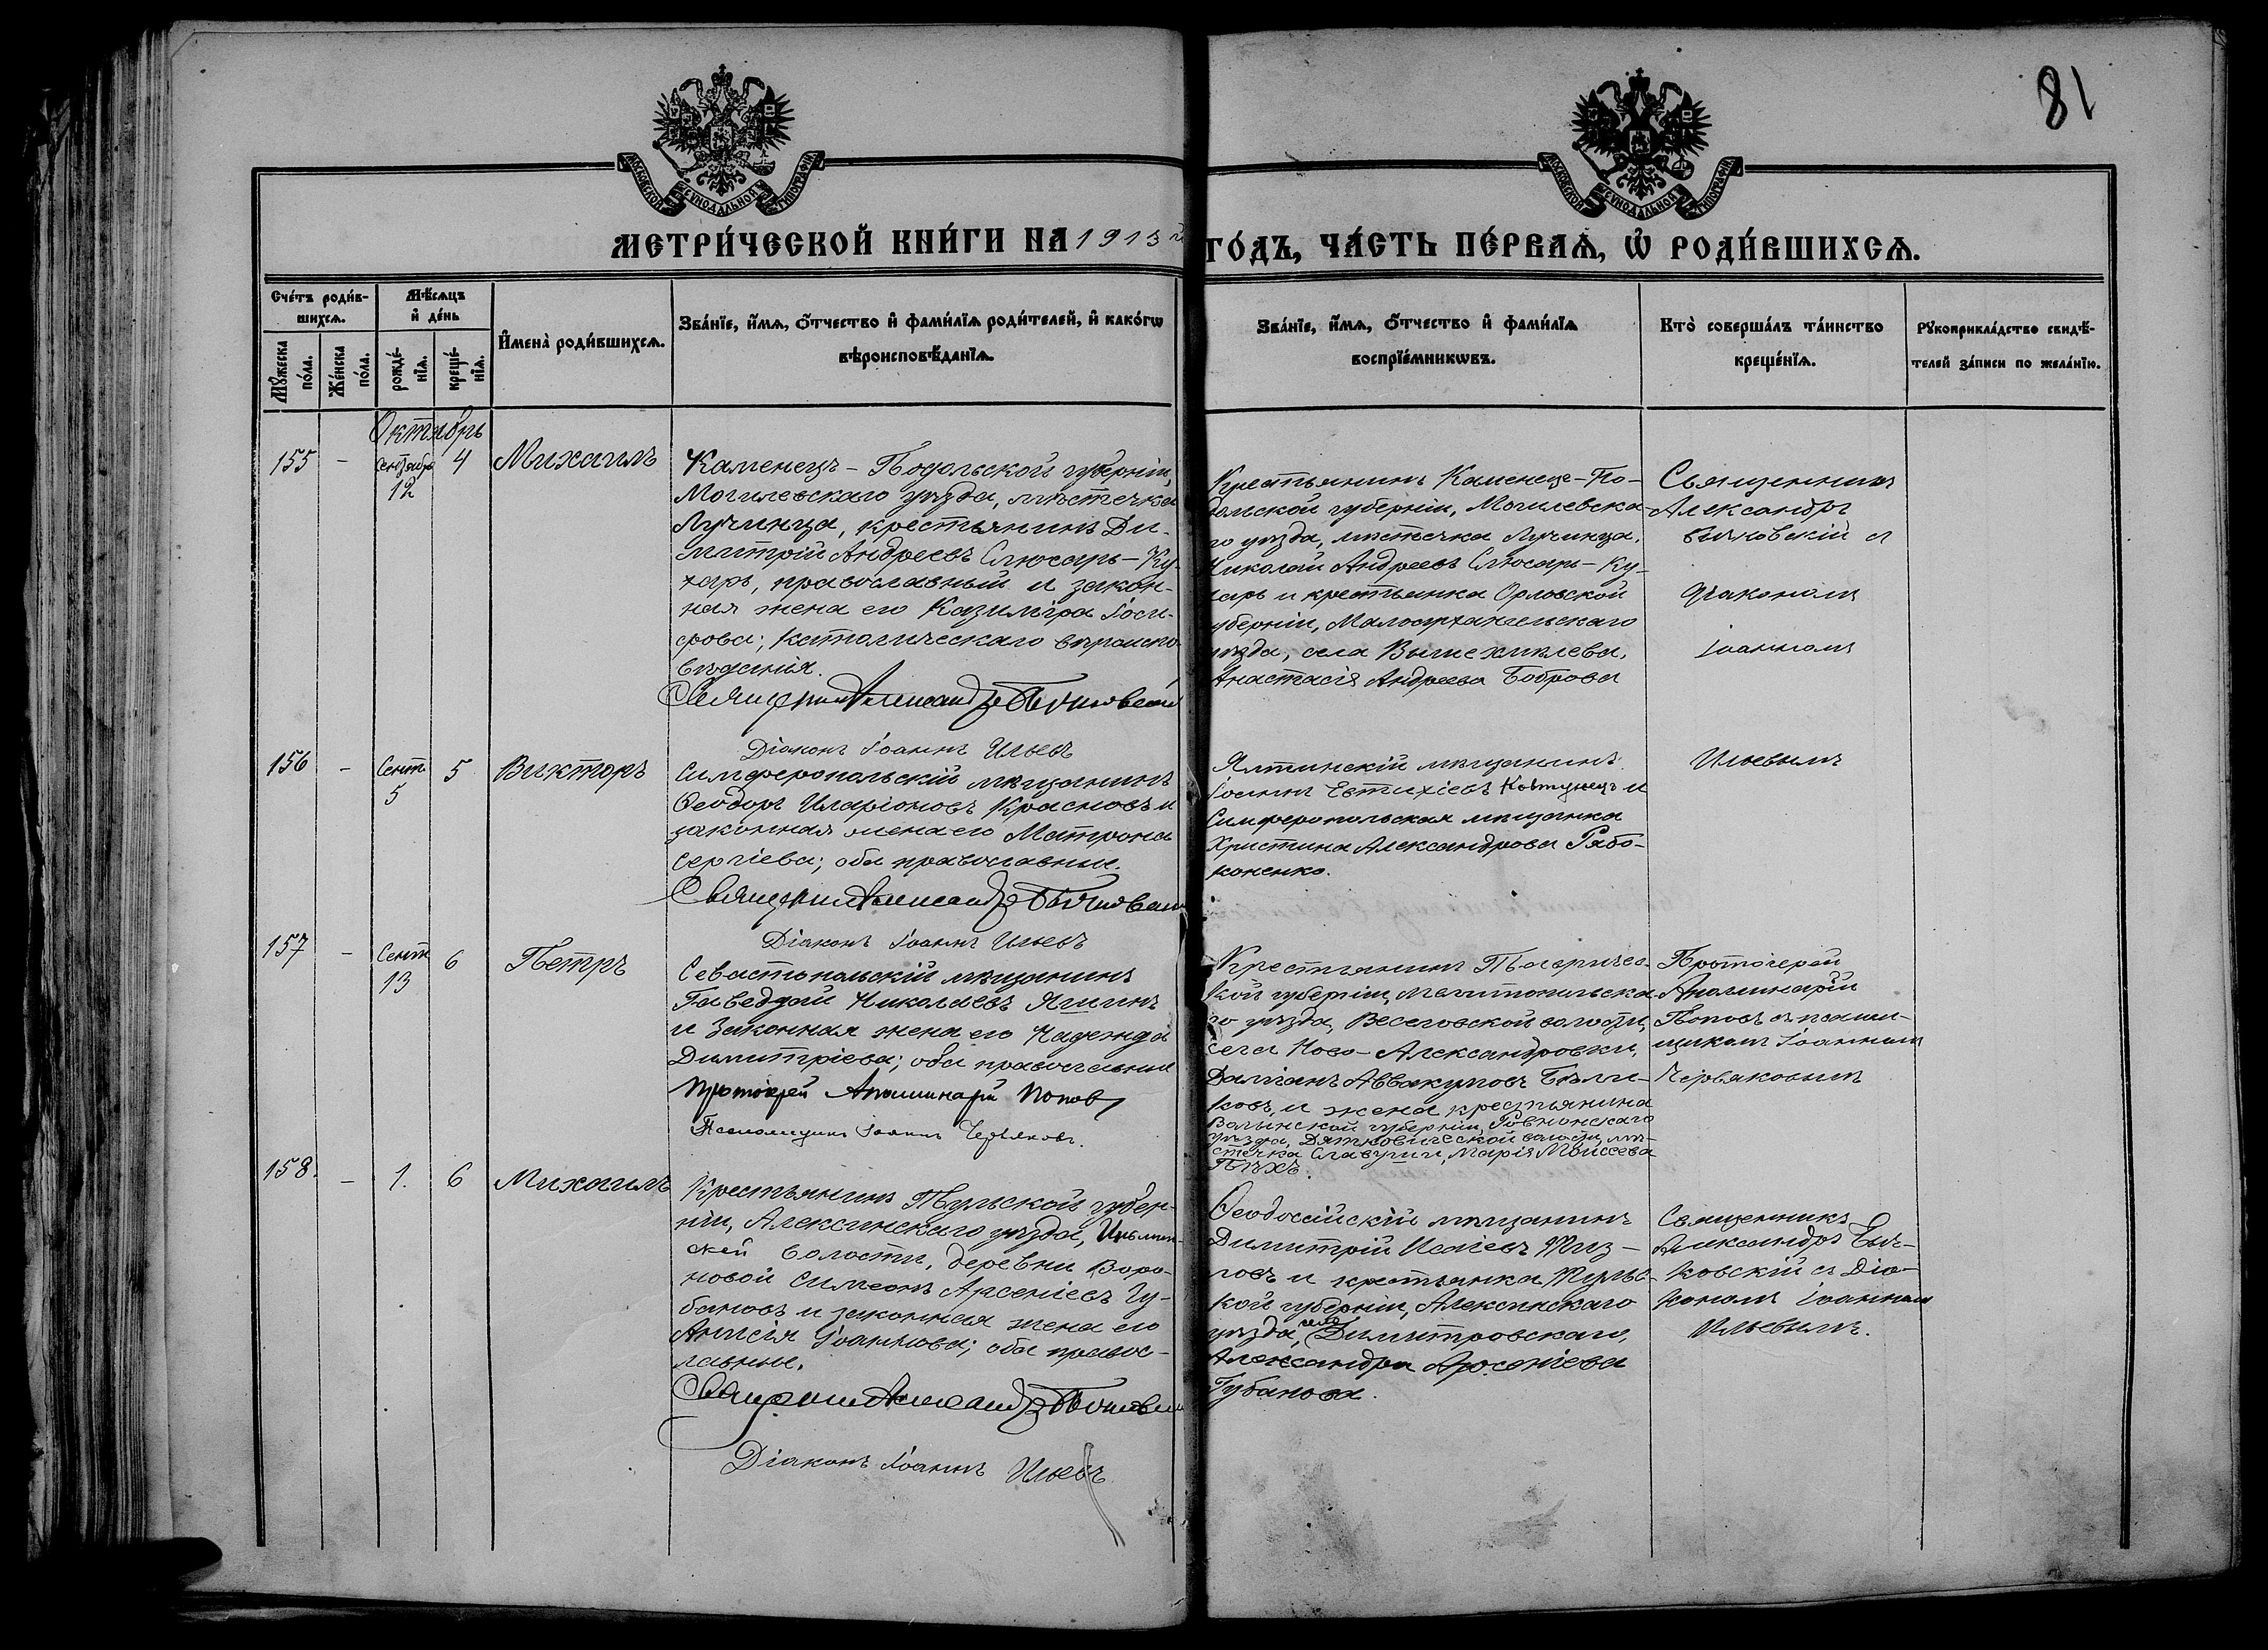 81
МОСКОВСКОЙ СѴНОДАЛЬНОЙ ТИПОГРАФІИ
МОСКОВСКОЙ СѴНОДАЛЬНОЙ ТИПОГРАФІИ
МЕТРИ́ЧЕСКОЙ КНИ́ГИ НА 1913 й ГО́ДЪ, ЧА́СТЬ ПЕ́РВАѦ, Ѡ҆ РОДИ́ВШИХСѦ.
Сче́тъ роди́в-
шихсѧ.
Мꙋ́жеска по́ла.
Же́нска по́ла.
Мѣ́сѧцъ
и҆ де́нь
рожде́-
нїѧ.
креще́-
нїѧ.
И҆мена̀ роди́вшихсѧ.
Зва́нїе, и҆́мѧ, ѻ҆́тчество и҆ фамѝлїѧ роди́телей, и҆ како́гѡ
вѣроисповѣ́данїѧ.
Зва́нїе, и҆́мѧ, ѻ҆́тчество и҆ фами́лїѧ
воспрїе́мникѡвъ.
Кто̀ соверша́лъ та́инство
креще́нїѧ.
Рꙋкоприкла́дство свидѣ́-
телей за́писи по жела́нїю.
Октябрь
155 - Сентябрь 4 Михаилъ
12
Каменецъ-Подольской губерніи,
Могилевскаго уѣзда, мѣстечка
Лучинца, крестьянинъ Ди-
митрій Андреевъ Слюсарь-Ку-
харь, православный и закон-
ная жена его Казиміра Іоси-
фова; католическаго вѣроиспо-
вѣданія.
Священникъ Александръ Бычковскій
Діаконъ Іоаннъ Ильевъ
Крестьянинъ Каменецъ-По-
дольской губерніи, Могилевска-
го уѣзда, мѣстечка Лучинца,
Николай Андреевъ Слюсарь-Ку-
харь и крестьянка Орловской
губерніи, Малоархангельскаго
уѣзда, села
Анастасія Андреева Боброва
Священникъ
Александръ
Бычковскій съ
діакономъ
Іоанномъ
Ильевымъ
156 - Сент 5 Викторъ
5
Симферопольскій мѣщанинъ
Ѳеодоръ Иларіоновъ Красновъ и
законная жена его Матрона
Сергіева; оба православные.
Священникъ Александръ Бычковскій
Діаконъ Іоаннъ Ильевъ
Ялтинскій мѣщанинъ
Іоаннъ Евтихіевъ Ковтунецъ и
Симферопольская мѣщанка
Христина Александрова Рябо-
коненко.
157 - Сент 6 Петръ
13
Севастопольскій мѣщанинъ
Николаевъ
и законная жена его Надежда
Димитріева; оба православные
Протоіерей Аполлинарій Поповъ
Псаломщикъ Іоаннъ Червяковъ.
Крестьянинъ Тавричес-
кой губерніи, Мелитопольска-
го уѣзда, Веселовской волости,
села Ново-Александровки,
Даміанъ Аввакумовъ Бѣли-
ковъ, и жена крестьянина
Волынской губерніи, Ровенскаго
уѣзда, Дятковической волости, мѣ-
стечка Марія Моисеева
Протоіерей
Аполлинарій
Поповъ съ псалом-
щикомъ Іоанномъ
Червяковымъ
158. - 1. 6 Михаилъ
Крестьянинъ Тульской губер-
ніи, Алексинскаго уѣзда,
ской волости, деревни Воро-
новой Симеонъ Арсеніевъ Гу-
бановъ и законная жена его
Анисія Іоаннова; оба правос-
лавные.
Священникъ Александръ Бычковскій
Діаконъ Іоаннъ Ильевъ
Ѳеодосійскій мѣщанинъ
Димитрій Исаіевъ
и крестьянка Тульс-
кой губерніи, Алексинскаго
уѣзда, села Димитровскаго,
Александра Арсеніева
Губанова.
Священникъ
Александръ Быч-
ковскій съ Діа-
кономъ Іоанномъ
Ильевымъ.